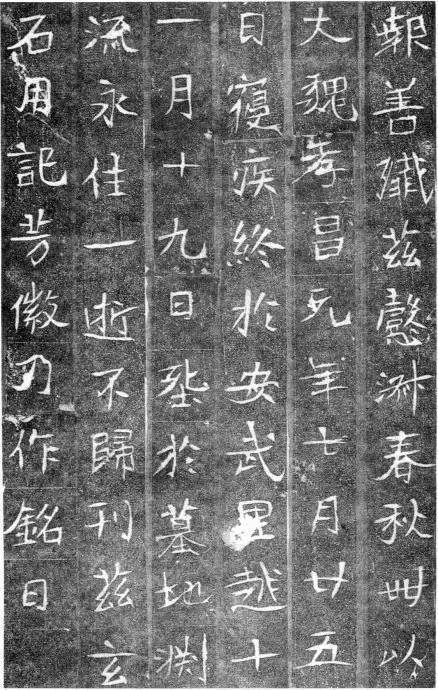 報善殲茲懿淑春秋卌以
大魏孝昌元年七月廿五
日寢疾終於安武里越十
一月十九日塟於墓地渕
流永往一逝不歸刊茲玄
石用記芳徽乃作銘曰